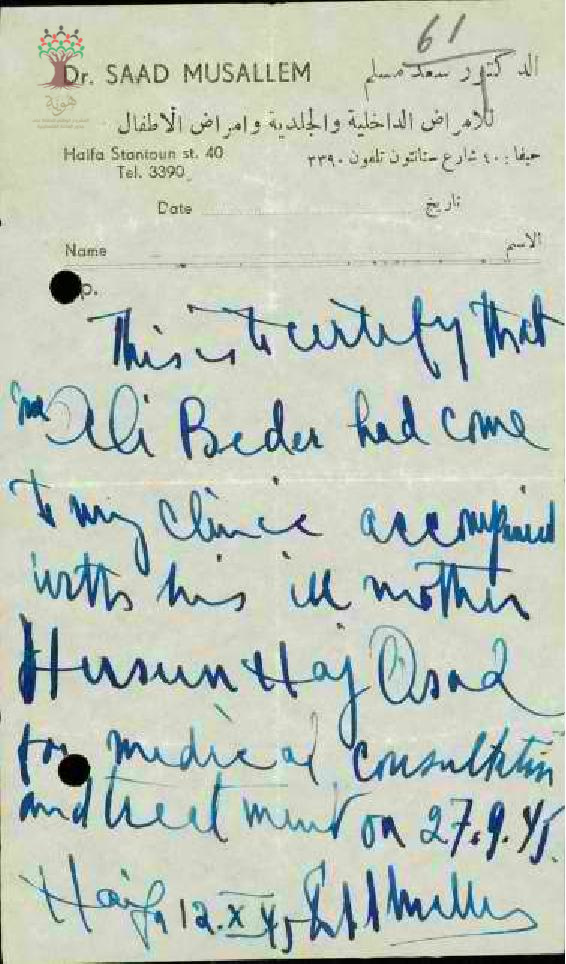 61
Dr. SAAD MUSALLEM
الدكتور سعد مسلم
للامراض الداخلية والجلدية وامراض الاطفال
Haifa Stantoun st. 40
حيفا : ٤٠ شارع ستانتون تلفون ٣٣٩٠
Tel. 3390
Date تاريخ
Name الاسم
p.
This is to certify that
mr Ali Beder had come
to my clinic accompained
with his ill mother
Hursun Haj Asad
for medical consultation
and treetment on 27.9.45.
Haifa 12.X 45
هوية